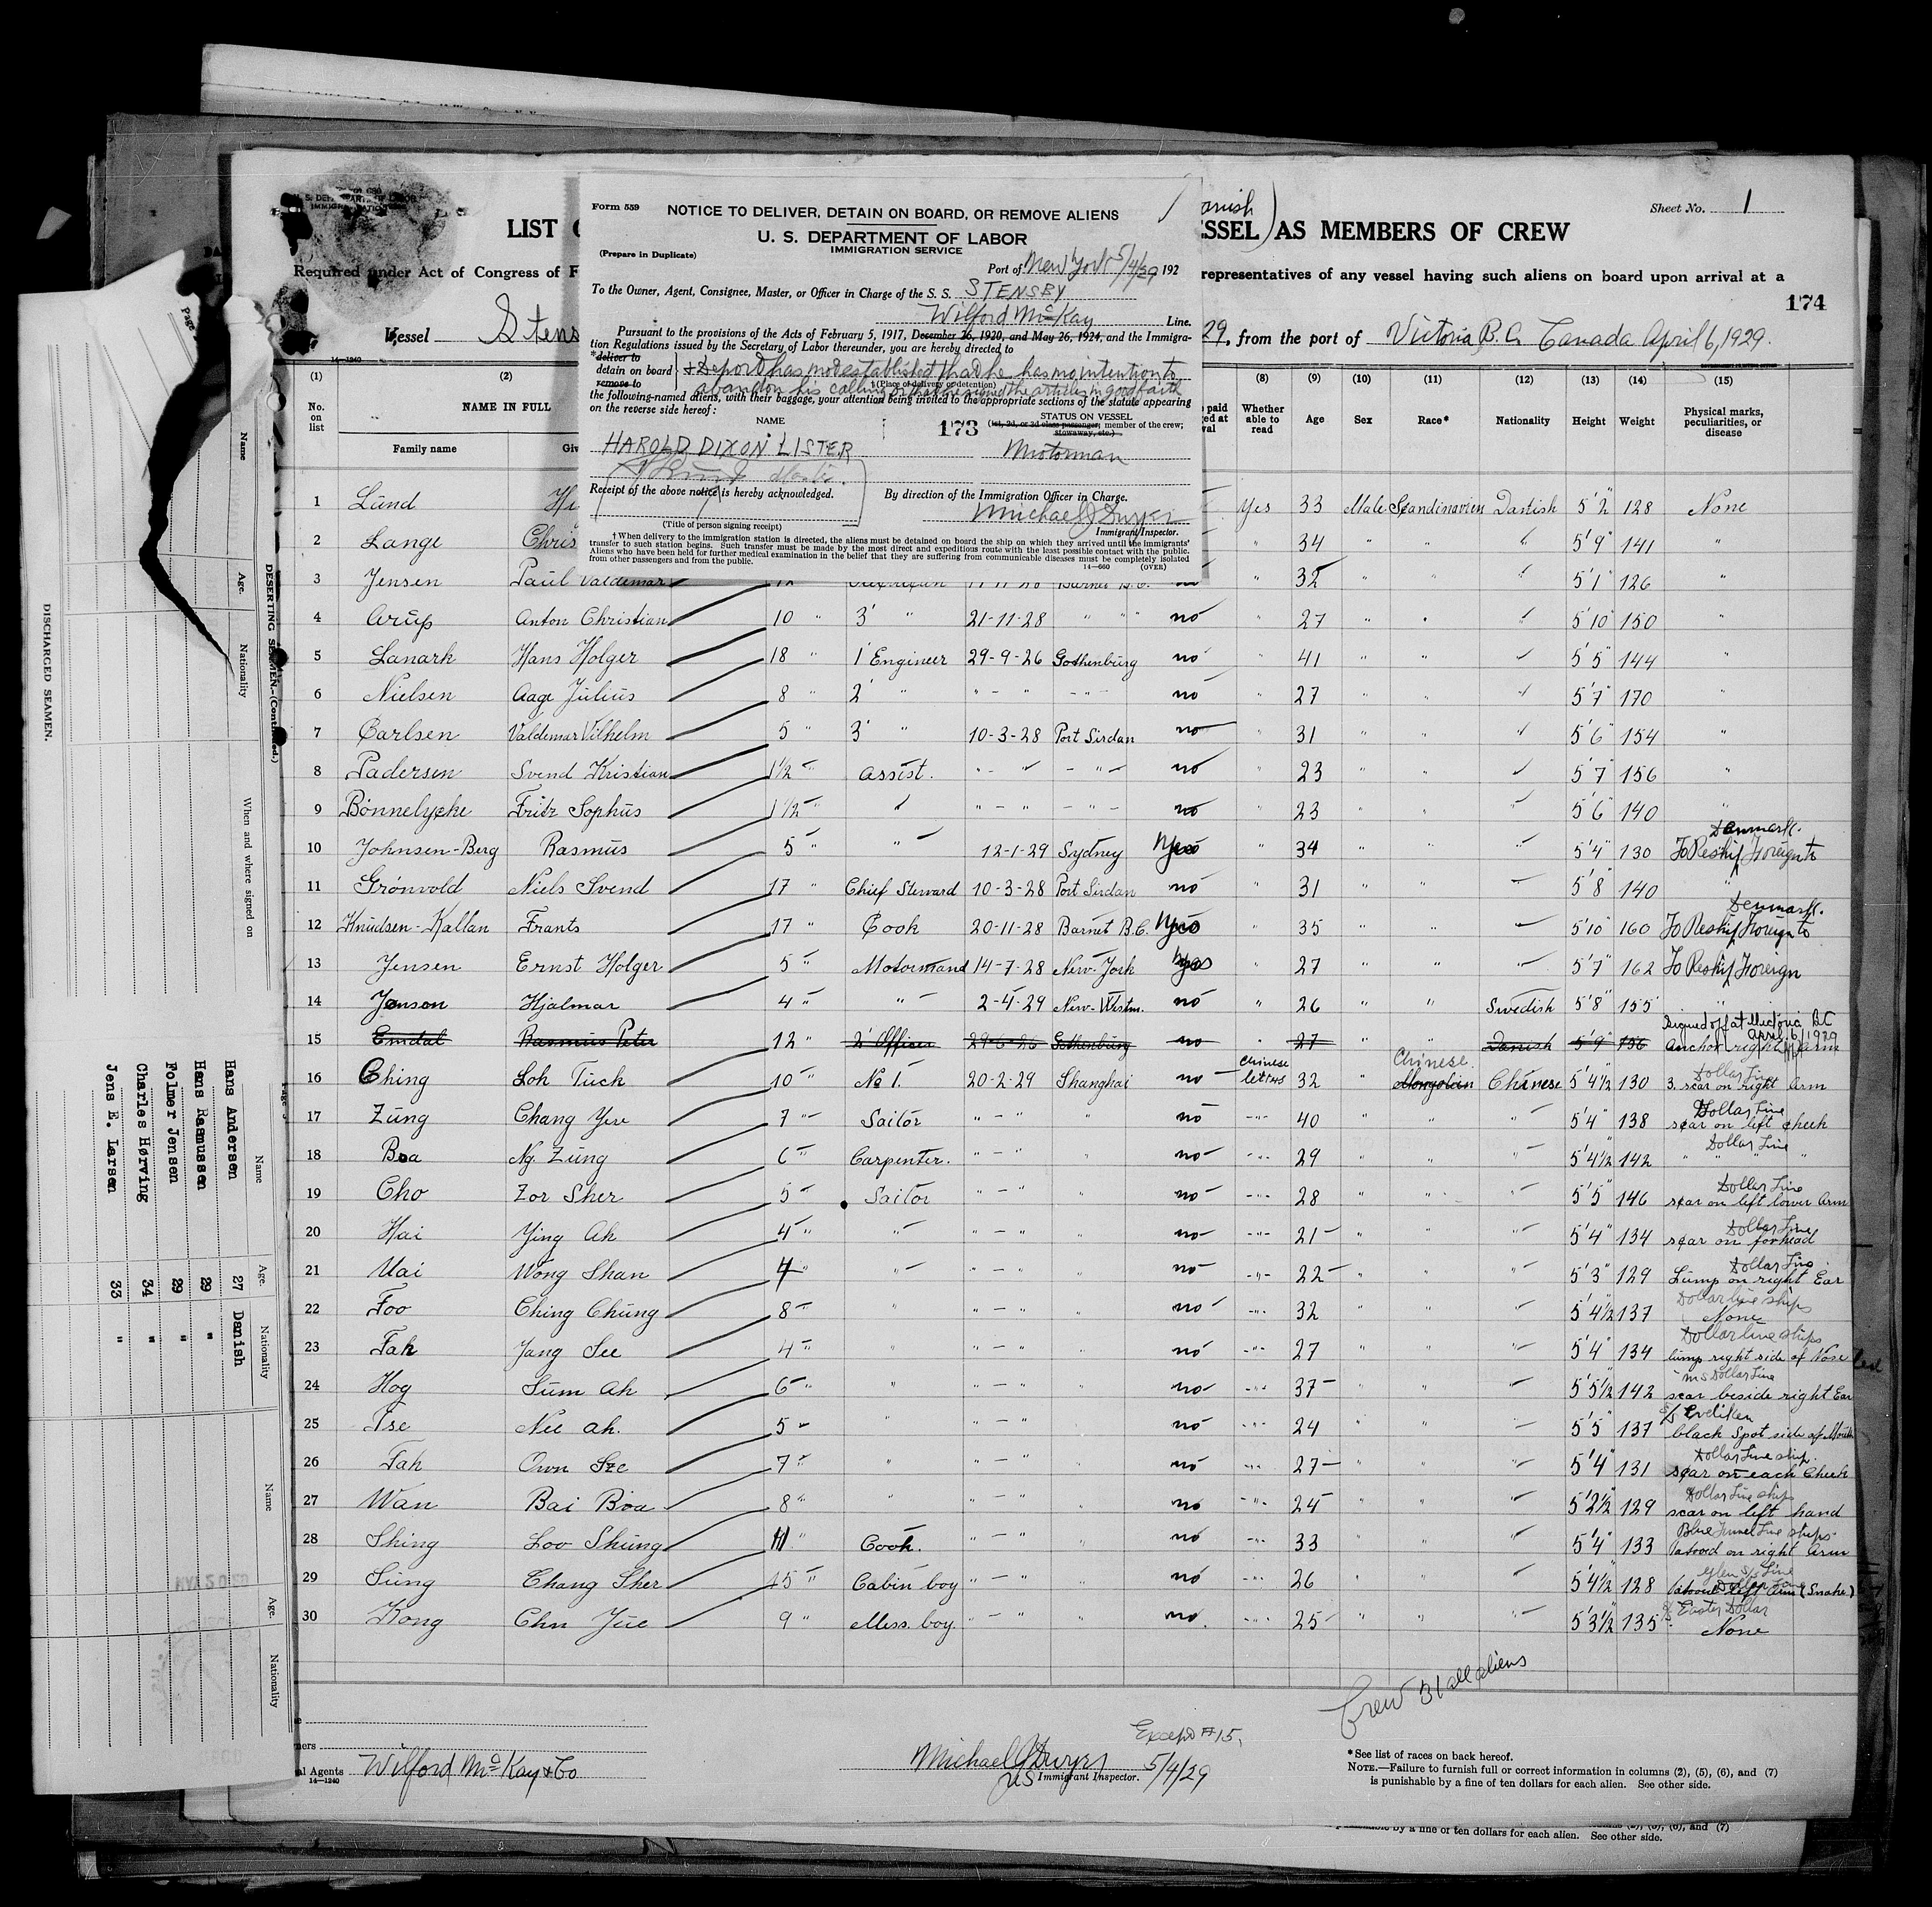 Sheet No. 1
LIST
ESSEL) AS MEMBERS OF CREW
Required under Act of Congress of F
representatives of any vessel having such aliens on board upon arrival at a
174
Vessel Stens
29, from the port of Victoria B.C. Canada April 6, 1929.
14-1240
Form 559
NOTICE TO DELIVER, DETAIN ON BOARD, OR REMOVE ALIENS
U. S. DEPARTMENT OF LABOR
IMMIGRATION SERVICE
(Prepare in Duplicate)
Port of New York 5/4/29 192
To the Owner, Agent, Consignee, Master, or Officer in Charge of the S. S. STENSBY
Wilford McKay Line.
Pursuant to the provisions of the Acts of February 5, 1917, December 26, 1920, and May 26, 1924, and the Immigra-
tion Regulations issued by the Secretary of Labor thereunder, you are hereby directed to
*deliver to
detain on board
remove to
has not established that he has no intention to
abandon his calling or that he signed the articles in good faith
(Place of delivery or detention)
the following-named aliens, with their baggage, your attention being invited to the appropriate sections of the statute appearing
on the reverse side hereof:
NAME
173
STATUS ON VESSEL
(1st, 2d, or 3d class passenger, member of the crew;
stowaway, etc.)
HAROLD DIXON LISTER Motorman
Receipt of the above notice is hereby acknowledged.
By direction of the Immigration Officer in Charge.
Michael J Dwyer
(Title of person signing receipt)
Immigrant Inspector.
† When delivery to the immigration station is directed, the aliens must be detained on board the ship on which they arrived until the immigrants'
transfer to such station begins. Such transfer must be made by the most direct and expeditious route with the least possible contact with the public.
Aliens who have been held for further medical examination in the belief that they are suffering from communicable diseases must be completely isolated
from other passengers and from the public.
14-660 (OVER)
(1) (2) (8) (9) (10) (11) (12) (13) (14) (15)
No. on list
NAME IN FULL
Family name
Whether able to read
Age
Sex
Race*
Nationality
Height
Weight
Physical marks, peculiarities, or disease
1 Lund Yes 33 Male Scandinavien Danish 5'2" 128 None
2 Lange Chris " 34 " " " 5'9" 141 "
3 Jensen Paul Valdemar " 32 " " " 5'1" 126 "
4 Arup Anton Christian 10 " 3' " 21-11-28 " " " no " 27 " " " 5'10" 150 "
5 Lanark Hans Holger 18 " 1' Engineer 29-9-26 Gothenburg no " 41 " " " 5'5" 144 "
6 Nielsen Aage Julius 8 " 2' " " - " - " - no " 27 " " " 5'7" 170 "
7 Carlsen Valdemar Vilhelm 5 " 3' " 10-3-28 Port Sirdan no " 31 " " " 5'6" 154 "
8 Padersen Svend Kristian 1 1/2 " Assist. " - " - " - no " 23 " " " 5'7" 156 "
9 Bönnelycke Fritz Sophus 1 1/2 " " " - " - " - no " 23 " " " 5'6" 140 "
10 Johnsen-Berg Rasmus 5 " " 12-1-29 Sydney yes " 34 " " " 5'4" 130 To Reship Foreign to Denmark.
11 Grönvold Niels Svend 17 " Chief Steward 10-3-28 Port Sirdan no " 31 " " " 5'8" 140 "
12 Knudsen-Kallan Frants 17 " Cook 20-11-28 Barnet B.C. yes " 35 " " " 5'10" 160 To Reship Foreign to Denmark.
13 Jensen Ernst Holger 5 " Motormand 14-7-28 New-York yes " 27 " " " 5'7" 162 To Reship Foreign
14 Jonson Hjalmar 4 " " 2-4-29 New-Westm. no " 26 " " Swedish 5'8" 155 "
15 Emdal Rasmus Peter 12 " 2' Officer 29-6-26 Gothenburg no " 27 " " Danish 5'9" 156 Anchor right arm
Signed off at Victoria BC April 6, 1929
16 Ching Loh Tuck 10 " No 1. 20-2-29 Shanghai no Chinese letters 32 " Mongolian Chinese Chinese 5'4 1/2 130 3. scar on right arm Dollar Line
17 Zung Chang Yeu 7 " Sailor " - " " no -"- 40 " " " 5'4" 138 scar on left cheek Dollar Line
18 Boa Ng. Zung 6 " Carpenter. " - " " no -"- 29 " " " 5'4 1/2 142 " " " " Dollar Line
19 Cho Zor Sher 5 " Sailor " - " " no -"- 28 " " " 5'5" 146 scar on left lower arm Dollar Line
20 Hai Ying Ah 4 " " " - " " no -"- 21 " " " 5'4" 134 scar on forhead Dollar Line
21 Uai Wong Shan 4 " " " - " " no -"- 22 " " " 5'3" 129 Lump on right Ear Dollar Line
22 Foo Ching Chung 8 " " " - " " no -"- 32 " " " 5'4 1/2 137 None Dollar line ships
23 Fah Jang See 4 " " " - " " no -"- 27 " " " 5'4" 134 lump right side of Nose Dollar line ships
24 Hog Sum Ah 6 " " " - " " no -"- 37 " " " 5'5 1/2 142 scar beside right Ear Dollar Line
25 Tse Nee ah. 5 " " " - " " no -"- 24 " " " 5'5" 137 black Spot side of Mouth
26 Fah Own Sze 7 " " " - " " no -"- 27 " " " 5'4" 131 scar on each Cheek Dollar Line ship.
27 Wan Bai Boa 8 " " " - " " no -"- 24 " " " 5'2 1/2 129 scar on left hand Dollar Line ships
28 Shing Loo Shung 11 " Cook. " - " " no -"- 33 " " " 5'4" 133 tatood on right Arm Blue Funnel Line ships
29 Sung Chang Sher 15 " Cabin boy " - " " no -"- 26 " " " 5'4 1/2 128 tatood left arm (Snake) Glen S/S Line
30 Kong Chn Jue 9 " Mess. boy. " - " " no. -"- 25 " " " 5'3 1/2 135 None
Crew 31 all aliens
Except #15.
Agents Wilford McKay & Co
14-1240
Michael J Dwyer
US Immigrant Inspector. 5/4/29
*See list of races on back hereof.
NOTE.—Failure to furnish full or correct information in columns (2), (5), (6), and (7)
is punishable by a fine of ten dollars for each alien. See other side.
by a fine of ten dollars for each alien. See other side.
DISCHARGED SEAMEN.
DESERTING SEAMEN.—(Continued.)
Name Age. Nationality When and where signed on
Name Age. Nationality
Hans Andersen 27 Danish
Hans Rasmussen 29 "
Folmer Jensen 29 "
Charles Hørving 34 "
Jens E. Larsen 33 "
Name Age. Nationality
Page